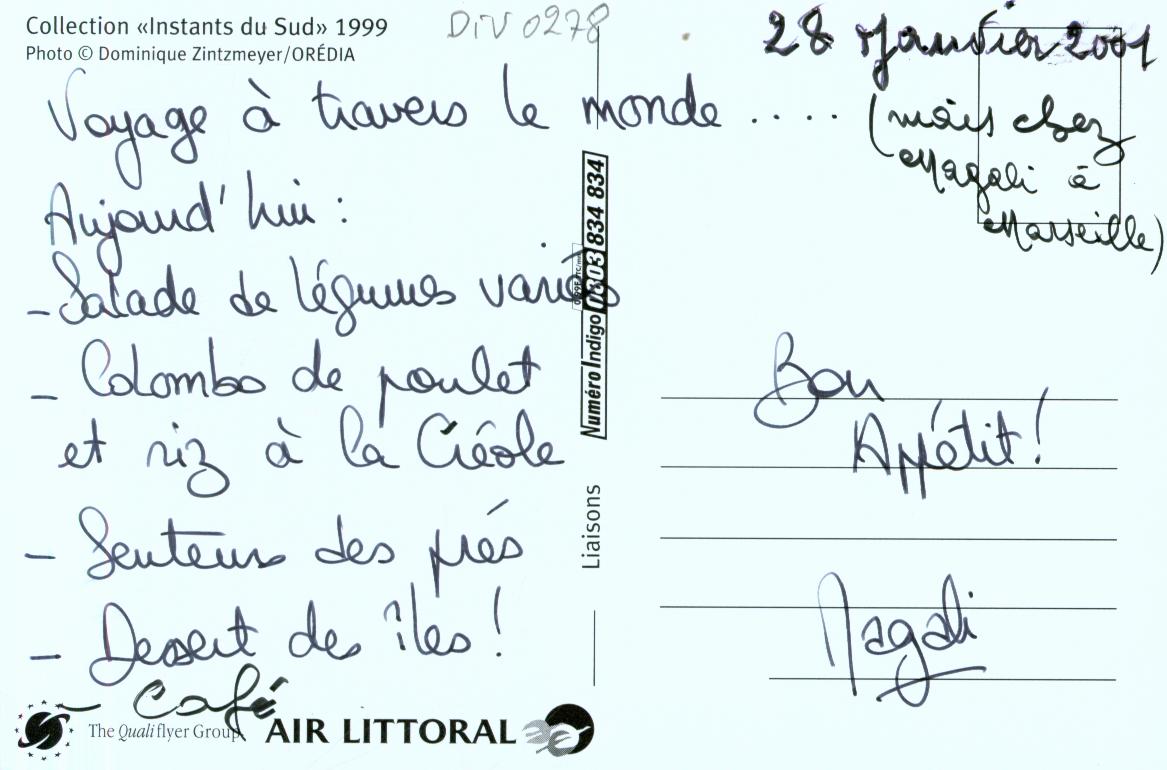 Collection «Instants du Sud» 1999
Photo © Dominique Zintzmeyer/ORÉDIA
DIV 0278
28 Janvier 2001
(mais chez
Magali à
Marseille)
Voyage à travers le monde ....
Aujourd'hui :
- Salade de légumes variés
- Colombo de poulet
et riz à la Créole
- Senteurs des prés
- Dessert des îles !
- Café
Numéro Indigo 0 803 834 834
Liaisons
Bon
Appétit !
Magali
The Qualiflyer Group
AIR LITTORAL